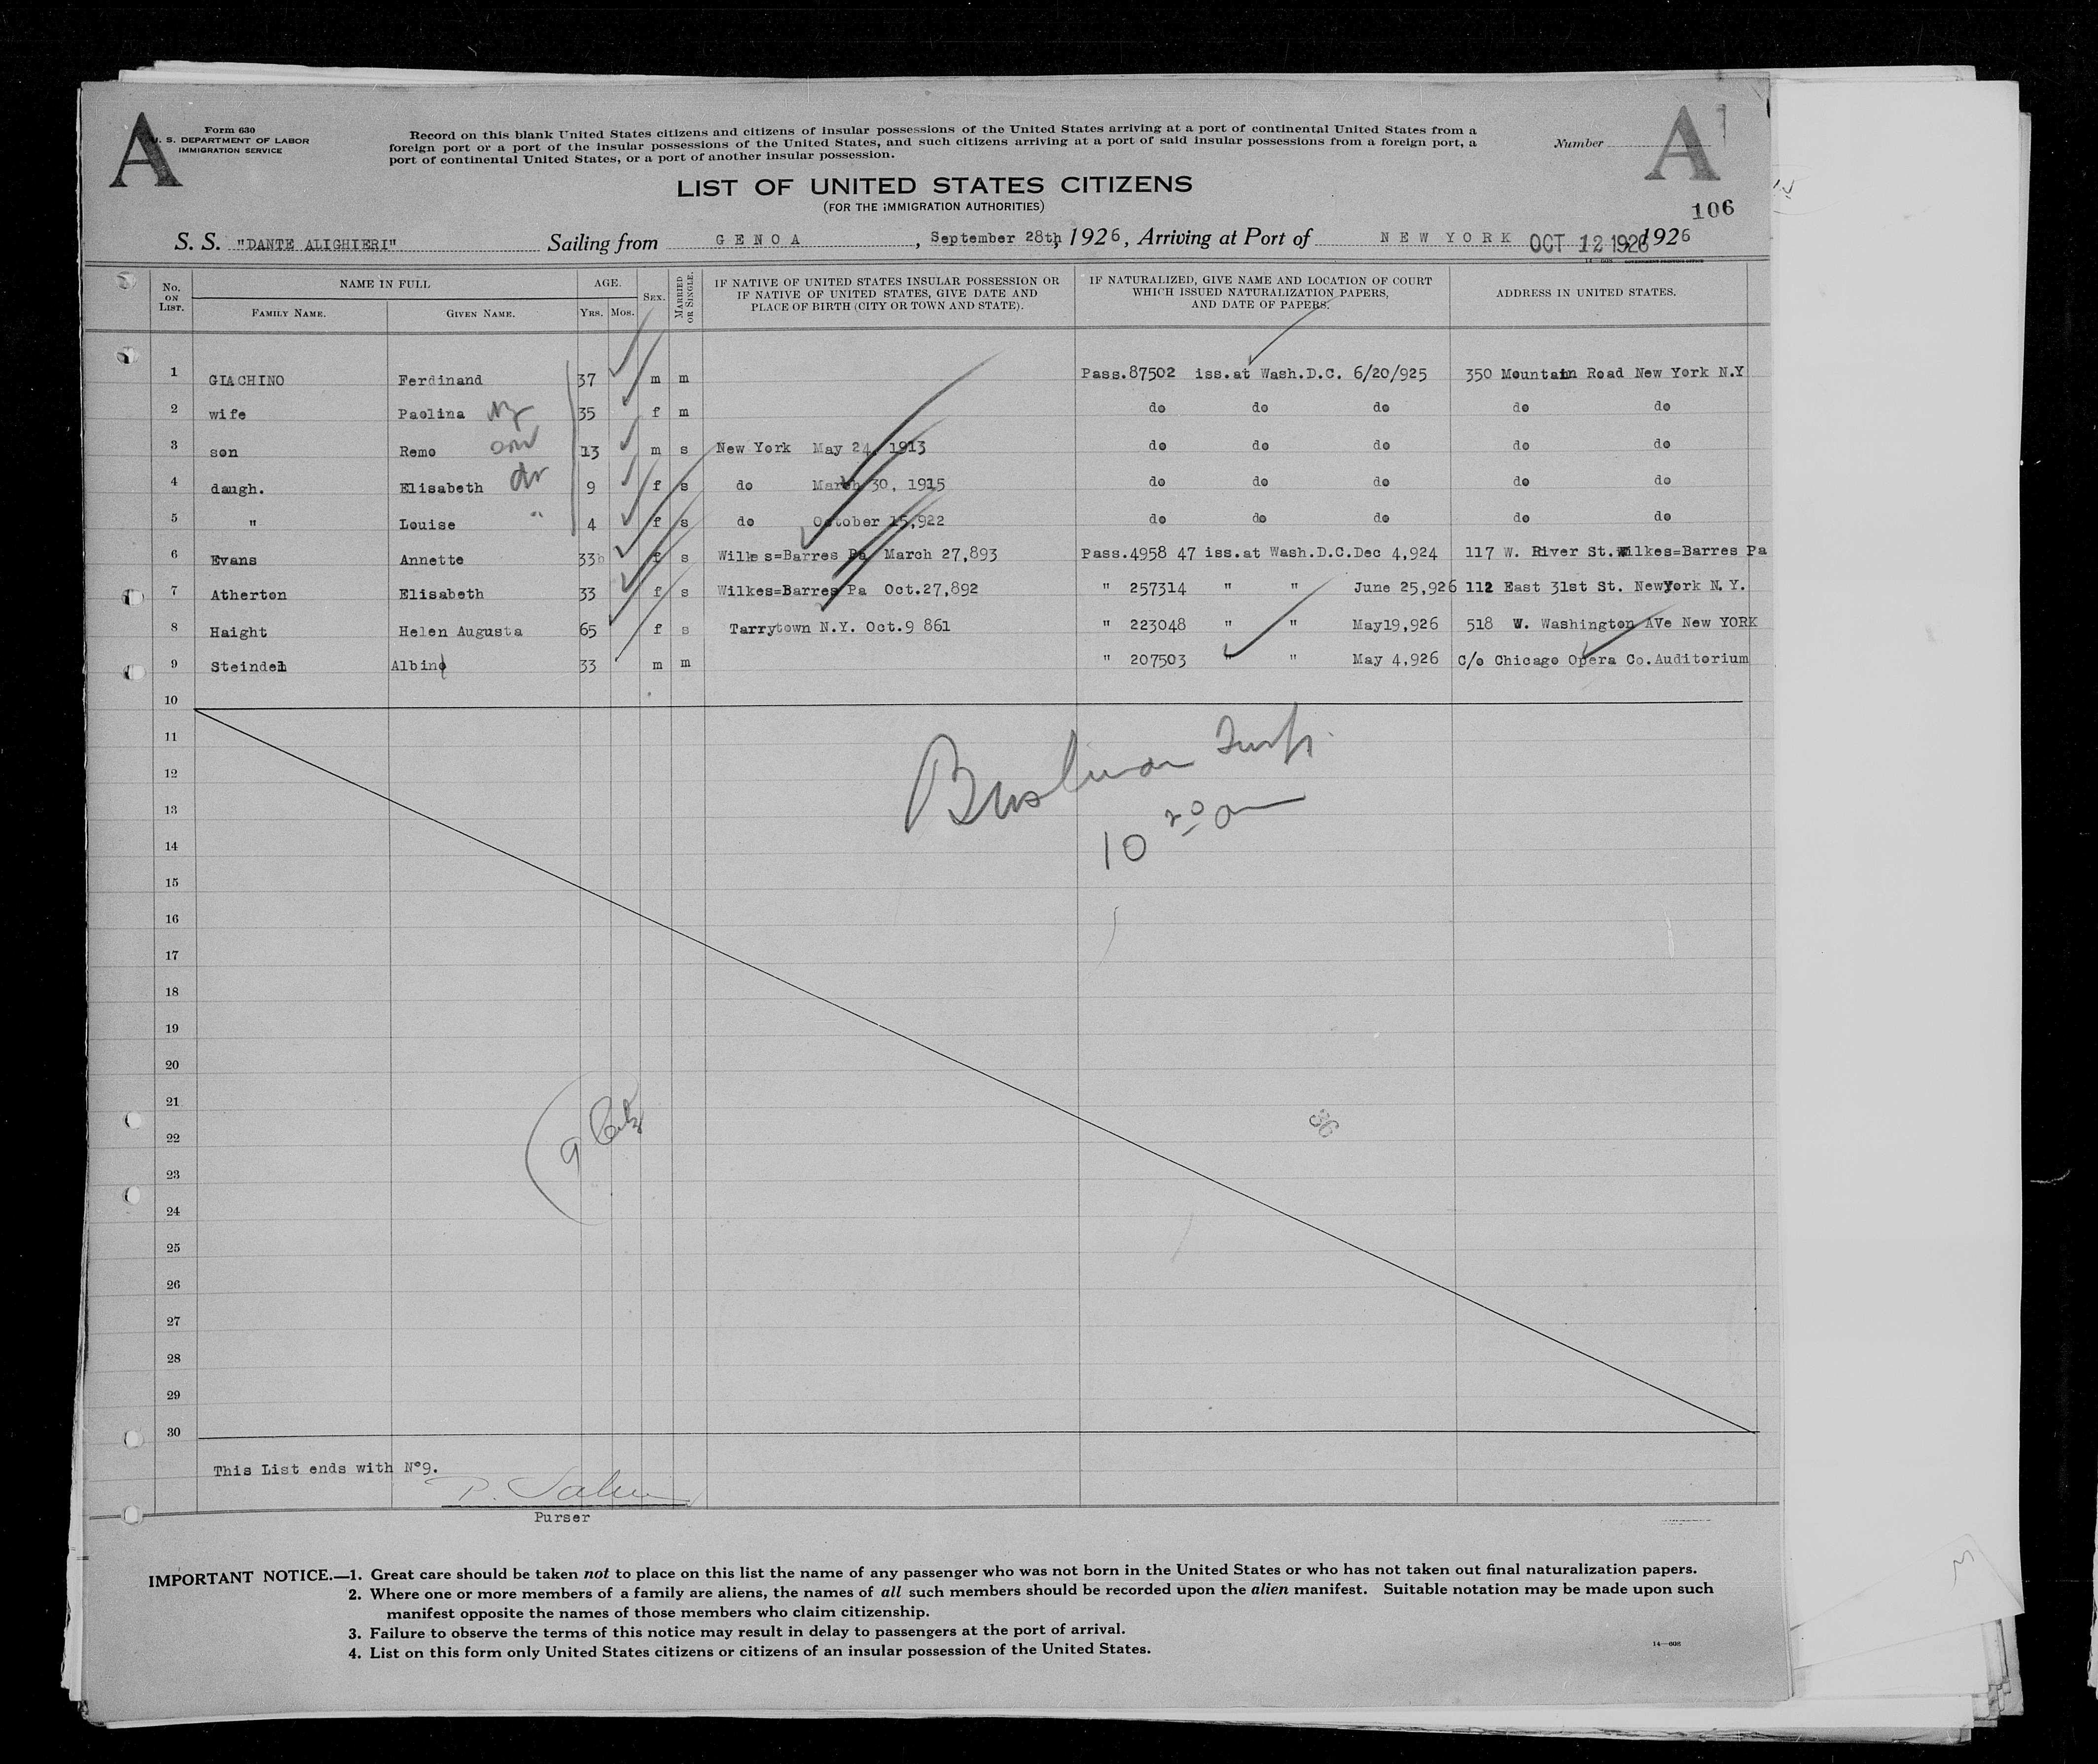 A
Form 630
U. S. DEPARTMENT OF LABOR
IMMIGRATION SERVICE
Record on this blank United States citizens and citizens of insular possessions of the United States arriving at a port of continental United States from a
foreign port or a port of the insular possessions of the United States, and such citizens arriving at a port of said insular possessions from a foreign port, a
port of continental United States, or a port of another insular possession.
Number
A
LIST OF UNITED STATES CITIZENS
(FOR THE IMMIGRATION AUTHORITIES)
106
S. S. "DANTE ALIGHIERI" Sailing from GENOA, September 28th, 1926, Arriving at Port of NEW YORK OCT 12 1926 1926
No. ON LIST. NAME IN FULL AGE. SEX. MARRIED OR SINGLE. IF NATIVE OF UNITED STATES INSULAR POSSESSION OR IF NATIVE OF UNITED STATES, GIVE DATE AND PLACE OF BIRTH (CITY OR TOWN AND STATE). IF NATURALIZED, GIVE NAME AND LOCATION OF COURT WHICH ISSUED NATURALIZATION PAPERS, AND DATE OF PAPERS. ADDRESS IN UNITED STATES.
FAMILY NAME. GIVEN NAME. YRS. MOS.
1 GIACHINO Ferdinand 37 m m Pass.87502 iss.at Wash.D.C. 6/20/925 350 Mountain Road New York N.Y
2 wife Paolina 35 f m do do do do do
3 son Remo 13 m s New York May 24, 1913 do do do do do
4 daugh. Elisabeth 9 f s do March 30, 1915 do do do do do
5 " Louise 4 f s do October 15,922 do do do do do
6 Evans Annette 33 f s Wilkes=Barres Pa March 27,893 Pass.4958 47 iss.at Wash.D.C.Dec 4,924 117 W. River St.Wilkes=Barres Pa
7 Atherton Elisabeth 33 f s Wilkes=Barres Pa Oct.27,892 " 257314 " " June 25,926 112 East 31st St. NewYork N.Y.
8 Haight Helen Augusta 65 f s Tarrytown N.Y. Oct.9 861 " 223048 " " May19,926 518 W. Washington AVe New YORK
9 Steindel Albin 33 m m " 207503 " " May 4,926 C/o Chicago Opera Co.Auditorium
10
11
12
13
10 20 am
14
15
16
17
18
19
20
21
36
22
9
23
24
25
26
27
28
29
30
This List ends with N°9.
Purser
IMPORTANT NOTICE.—1. Great care should be taken not to place on this list the name of any passenger who was not born in the United States or who has not taken out final naturalization papers.
2. Where one or more members of a family are aliens, the names of all such members should be recorded upon the alien manifest. Suitable notation may be made upon such
manifest opposite the names of those members who claim citizenship.
3. Failure to observe the terms of this notice may result in delay to passengers at the port of arrival.
4. List on this form only United States citizens or citizens of an insular possession of the United States.
14—608